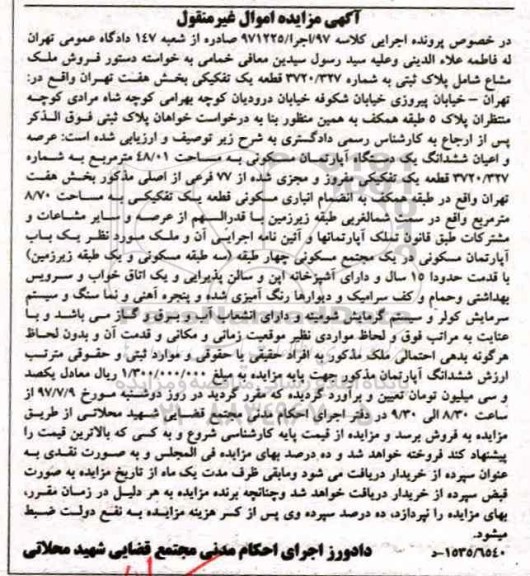 آگهی مزایده اموال غیرمنقول
در خصوص پرونده اجرایی کلاسه ۹۷/اجرا/۹۷۱۲۲۵ صادره از شعبه ۱۴۷ دادگاه عمومی تهران
له فاطمه علاء الدینی وعلیه سید رسول سیدین معافی خمامی به خواسته دستور فروش ملک
مشاع شامل پلاک ثبتی به شماره ۳۷۲۰/۳۲۷ قطعه یک تفکیکی بخش هفت تهران واقع در:
تهران – خیابان پیروزی خیابان شکوفه خیابان درودیان کوچه بهرامی کوچه شاه مرادی کوچه
منتظران پلاک ۵ طبقه همکف به همین منظور بنا به درخواست خواهان پلاک ثبتی فوق الذکر
پس از ارجاع به کارشناس رسمی دادگستری به شرح زیر توصیف و ارزیابی شده است: عرصه
و اعیان ششدانگ یک دستگاه آپارتمان مسکونی به مساحت ۴۸/۰۱ مترمربع به شماره
۳۷۲۰/۳۲۷ قطعه یک تفکیکی مفروز و مجزی شده از ۷۷ فرعی از اصلی مذکور بخش هفت
تهران واقع در طبقه همکف به انضمام انباری مسکونی قطعه یک تفکیکی به مساحت ۸/۷۰
مترمربع واقع در سمت شمالغربی طبقه زیرزمین با قدرالسهم از عرصه و سایر مشاعات و
مشترکات طبق قانون تملک آپارتمانها و آئین نامه اجرایی آن و ملک مورد نظر یک باب
آپارتمان مسکونی از یک مجتمع مسکونی چهار طبقه (سه طبقه مسکونی و یک طبقه زیرزمین)
با قدمت حدودا ۱۵ سال و دارای آشپزخانه اپن و سالن پذیرایی و یک اتاق خواب و سرویس
بهداشتی وحمام و کف سرامیک و دیوارها رنگ آمیزی شده و پنجره آهنی و نما سنگ و سیستم
سرمایش کولر و سیستم گرمایش شومینه و دارای انشعاب آب و برق و گاز می باشد و با
عنایت به مراتب فوق و لحاظ مواردی نظیر موقعیت زمانی و مکانی و قدمت آن و بدون لحاظ
هرگونه بدهی احتمالی ملک مذکور به افراد حقیقی یا حقوقی و موارد ثبتی و حقوقی مترتب
ارزش ششدانگ آپارتمان مذکور جهت پایه مزایده به مبلغ ۱/۳۰۰/۰۰۰/۰۰۰ ریال معادل یکصد
و سی میلیون تومان تعیین و برآورد گردیده که مقرر گردید در روز دوشنبه مورخ ۹۷/۷/۹ از
ساعت ۸/۳۰ الی ۹/۳۰ در دفتر اجرای احکام مدنی مجتمع قضایی شهید محلاتی از طریق
مزایده به فروش برسد و مزایده از قیمت پایه کارشناسی شروع و به کسی که بالاترین قیمت را
پیشنهاد کند فروخته خواهد شد و ده درصد بهای مزایده فی المجلس و به صورت نقدی به
عنوان سپرده از خریدار دریافت می شود ومابقی ظرف مدت یک ماه از تاریخ مزایده به صورت
قبض سپرده از خریدار دریافت خواهد شد وچنانچه برنده مزایده به هر دلیل در زمان مقرر،
بهای مزایده را نپردازد، ده درصد سپرده وی پس از کسر هزینه مزایده به نفع دولت ضبط
میشود.
۱۵۳۵/۶۵۴۰-د
دادورز اجرای احکام مدنی مجتمع قضایی شهید محلاتی